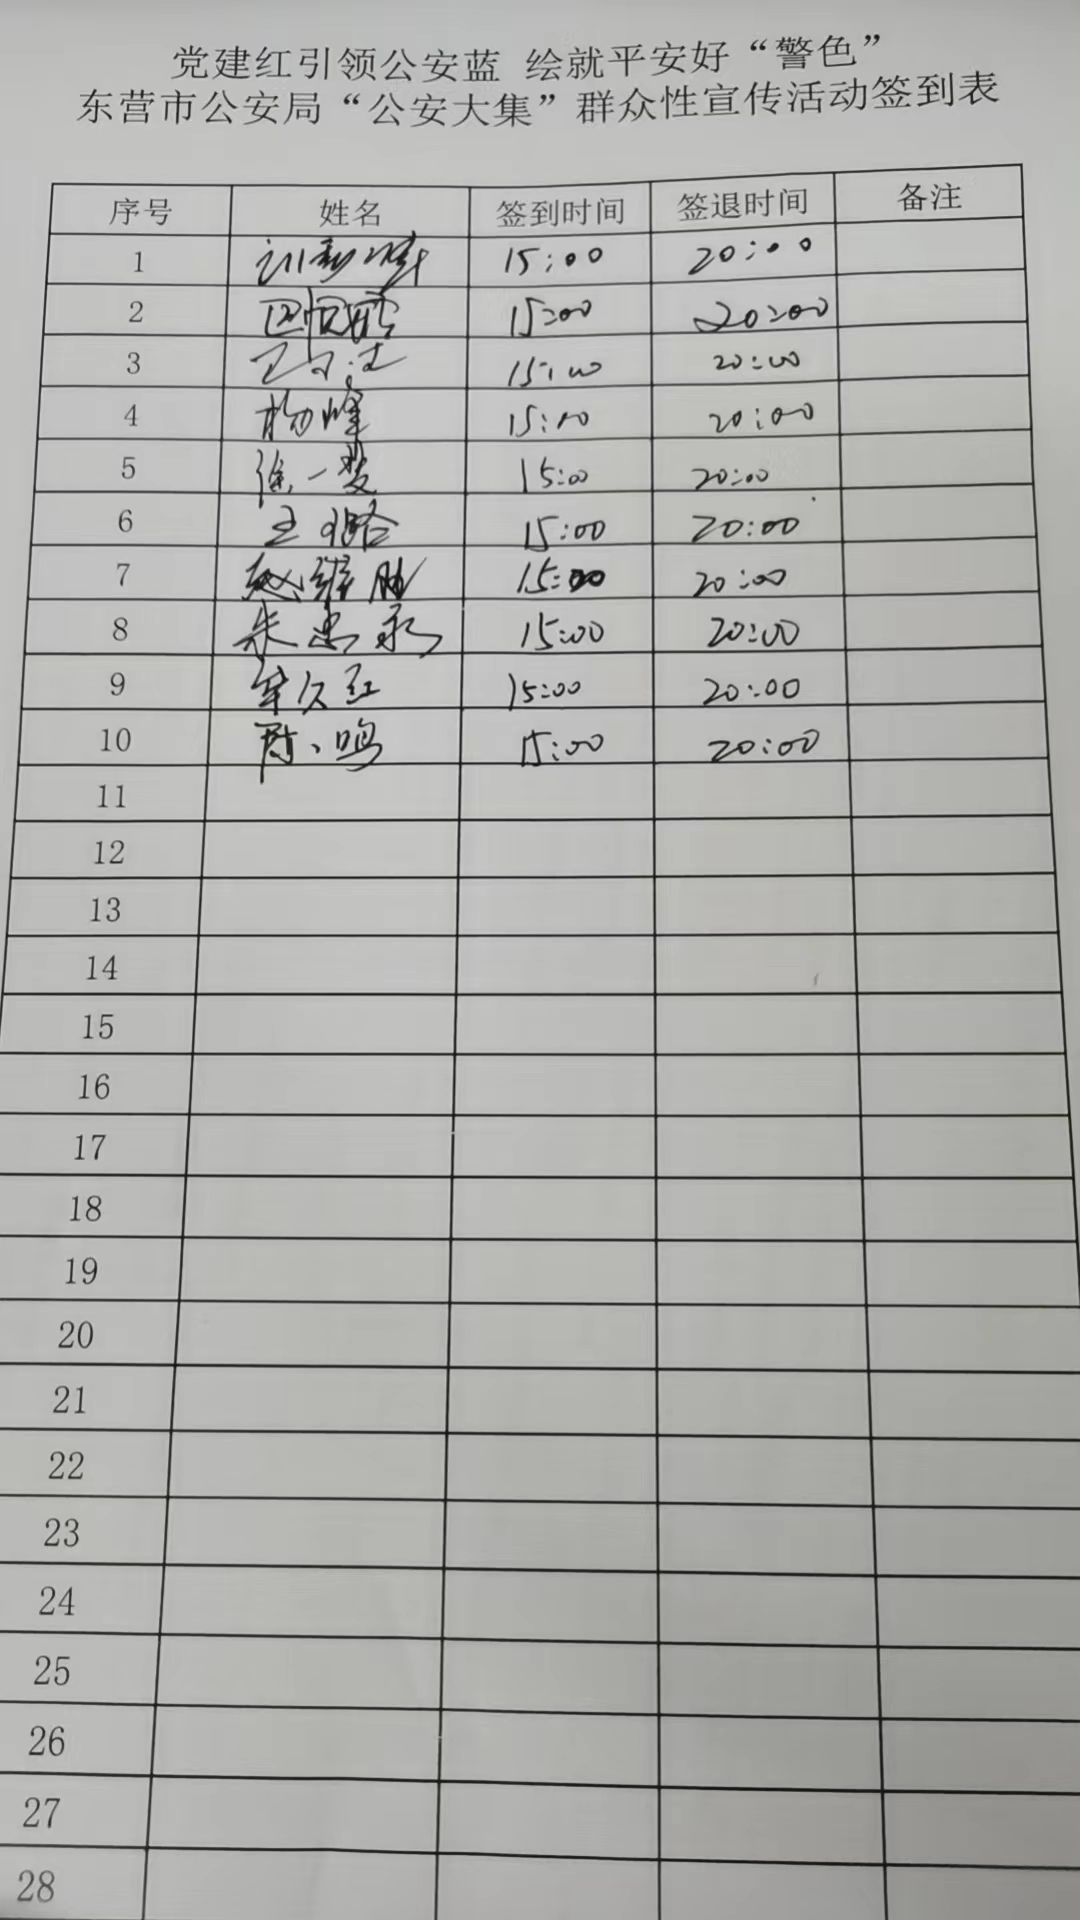 党建红引领公安蓝 绘就平安好“警色”
东营市公安局“公安大集”群众性宣传活动签到表
序号 姓名 签到时间 签退时间 备注
1 15:00 20:00
2 15:00 20:00
3 15:00 20:00
4 杨峰 15:00 20:00
5 徐一斐 15:00 20:00
6 王璐 15:00 20:00
7 赵维胜 15:00 20:00
8 朱忠永 15:00 20:00
9 牟久红 15:00 20:00
10 陈鸣 15:00 20:00
11
12
13
14
15
16
17
18
19
20
21
22
23
24
25
26
27
28